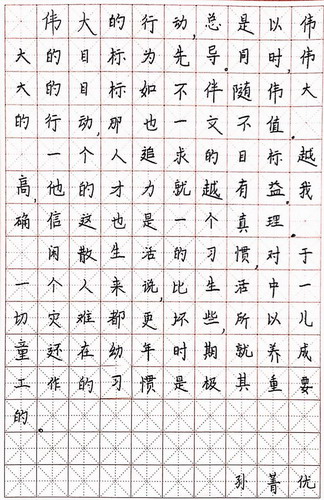 伟大的行动,总是以伟
大的目标为先导.同时,伟
大的目标如不伴随伟大
的行动,那也一文不值.
一个人追求的目标越
高,他的才力就越有益.我
确信这也是一个真理.
闲散生活的习惯,对于
一个人来说,比生活中一
切灾难都更坏些,所以儿
童还在幼年时期就养成
工作的习惯是极其重要
的。
孙菁优